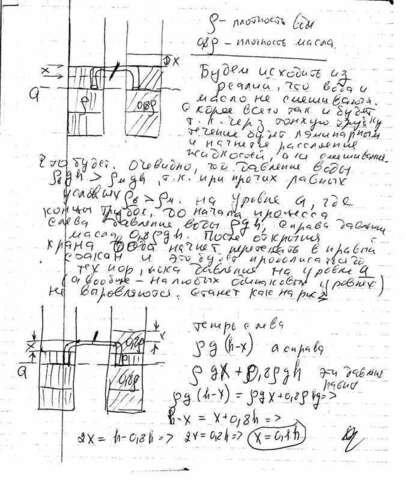 ρ - плотность воды
0,8ρ - плотность масла.
x
x
a
ρ
0,8ρ
Будем исходить из
реалий, что вода и
масло не смешиваются.
Скорее всего так и будет
т.к. через тонкую трубку
течение будет ламинарным
и начнётся расслоение
жидкостей, а не смешивание
Что будет. Очевидно, что давление воды
ρвgh > ρмgh, т.к. при прочих равных
условиях ρв > ρм. на уровне a, где
концы трубок, до начала процесса
слева давление воды ρgh, справа давление
масла 0,8ρgh. После открытия
крана вода начнет перетекать в правый
сосуд и это будет продолжаться до
тех пор, пока давление на уровне a
(а вообще - на любых одинаковых уровнях)
не выровняются. Станет как на рис 2
x
a
0,8ρ
ρ
0,8ρ
теперь слева
ρg(h-x) а справа
ρgx + 0,8ρgh эти давления
равны
ρg(h-x) = ρgx + 0,8ρgh =>
h-x = x + 0,8h =>
2x = h-0,8h => 2x = 0,2h => x = 0,1h